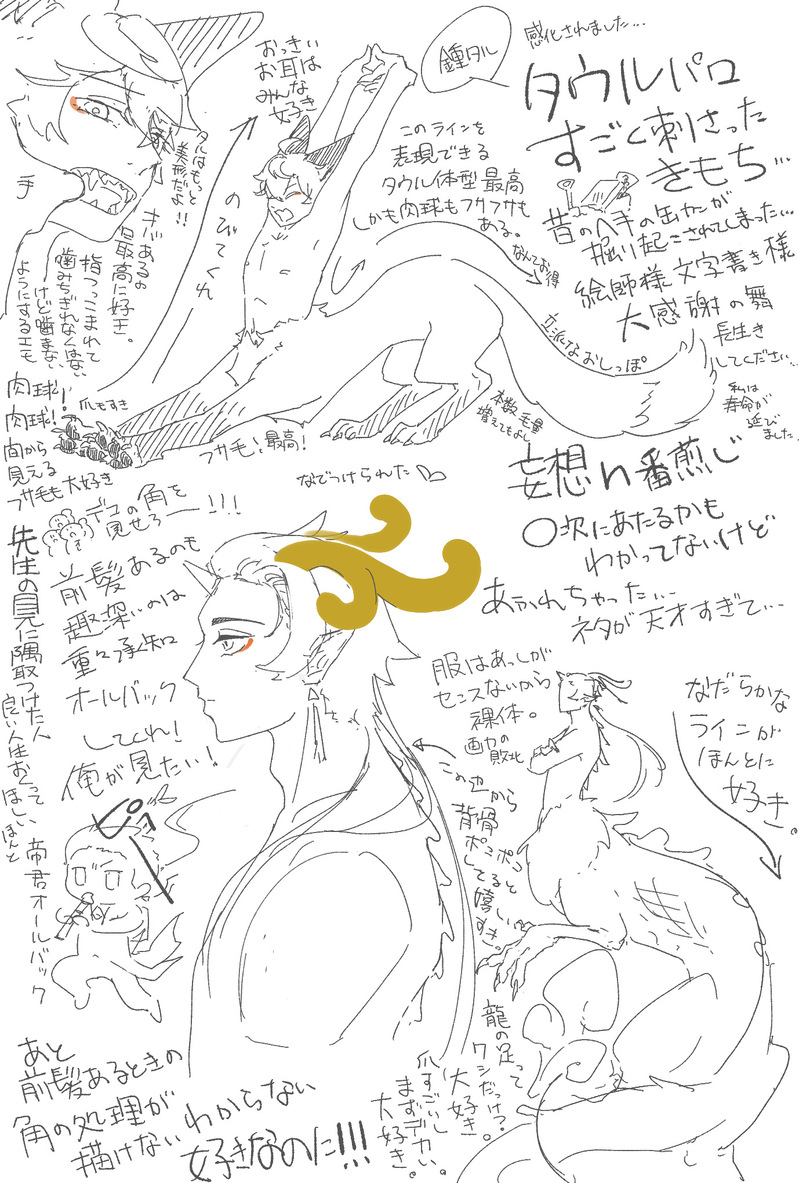 鍾タル
感化されました…
タウルパロ
すごく刺さった
きもち…
昔のヘキの缶カンが
掘り起こされてしまった…
絵師様文字書き様
大感謝の舞
長生き
してください…
私は
寿命が
延びました
おっきい
お耳は
みんな
好き
タルはもっと
美形だよ!!
このラインを
表現できる
タウル体型最高
しかも肉球もフサフサも
ある。
なんてお得
のびてくれ
キバあるの
最高に好き。
指つっこまれて
噛みちぎれなくはない
けど噛まない
ようにするエモ
立派なおしっぽ
本数毛量
増えてもよし
肉球!
肉球!
間から
見える
フサ毛も大好き
爪もすき
フサ毛!最高!
妄想n番煎じ
〇次にあたるかも
わかってないけど
あふれちゃった…
ネタが天才すぎて…
なでつけられた
デコの角を
見せろー!!!
前髪あるのも
趣深いのは
重々承知
オールバック
してくれ!
俺が見たい!
先生の見に隅取つけた人
良い人生おくって
ほしいほんと
帝君オールバック
ピュー
服はあっしが
センスないから
裸体。
画力の
敗北
この辺から
背骨
ポコポコ
してると
嬉しい
すき。
なだらかな
ラインが
ほんとに
好き。
龍の足って
ワシだっけ?
大好き。
爪すごいし
まずデカい。
大好き。
あと
前髪あるときの
角の処理が
描けないわからない
好きなのに!!!